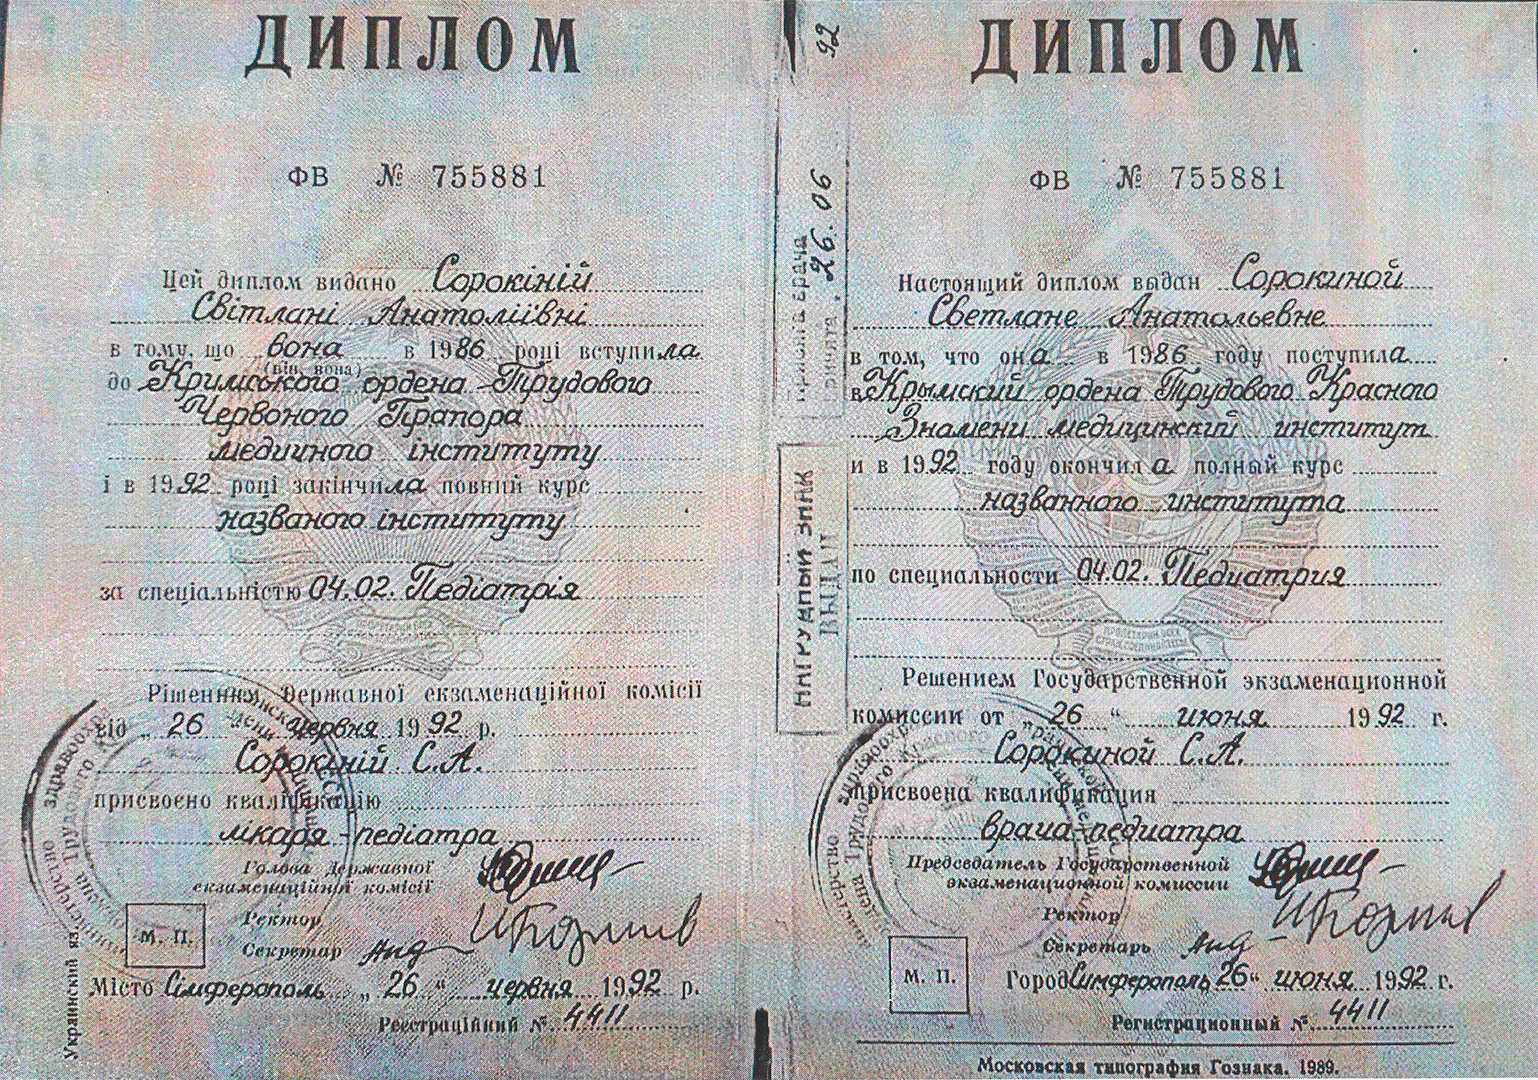 ДИПЛОМ
ФВ № 755881
Цей диплом видано Сорокіній
Світлані Анатоліївні
в тому, що вона в 1986 році вступила
(він, вона)
до Кримського ордена Трудового
Червоного Прапора
медичного інституту
і в 1992 році закінчила повний курс
названого інституту
за спеціальністю 04.02. Педіатрія
Рішенням Державної екзаменаційної комісії
від „ 26 червня 1992 р.
Сорокіній С.А.
присвоєно кваліфікацію
лікаря-педіатра
Голова Державної
екзаменаційної комісії
Ректор
М. П.
Секретар
Місто Сімферополь „ 26 “ червня 1992 р.
Реєстраційний № 4411
Украинский яз.
92
26.06
НАГРУДНЫЙ ЗНАК
ВЫДАН
ДИПЛОМ
ФВ № 755881
Настоящий диплом выдан Сорокиной
Светлане Анатольевне
в том, что она в 1986 году поступила
в Крымский ордена Трудового Красного
Знамени медицинский институт
и в 1992 году окончила полный курс
названного института
по специальности 04.02. Педиатрия
Решением Государственной экзаменационной
комиссии от „ 26 “ июня 1992 г.
Сорокиной С.А.
присвоена квалификация
врача-педиатра
Председатель Государственной
экзаменационной комиссии
Ректор
Секретарь
М. П.
Город Симферополь 26 “ июня 1992 г.
Регистрационный № 4411
Московская типография Гознака. 1989.